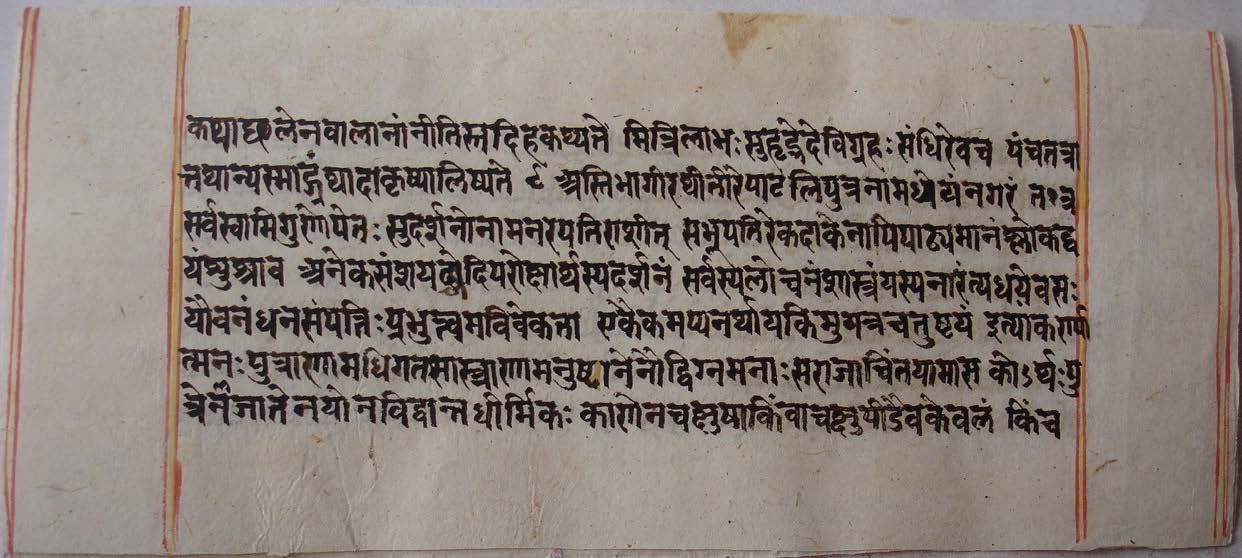 कथाछलेनवालानांनीतिस्तदिहकथ्यते मित्रिलाभःसुहृद्भेदेविग्रहःसंधिरेवच पंचतत्रा
त्तथान्यस्माद्ग्रंथादाकृष्यालिष्यते ९ अस्तिभागीरथीतीरेपाटलिपुत्रनामधेयंनगरं तत्र
सर्वस्वामिगुणोपेतः सुदर्शनोनामनरपतिराशीत् सभूपतिरेकदाकेनापिपाठ्यमानंश्लोकद्व
यंशुश्राव अनेकसंशयछेदिपरोक्षार्थस्यदर्शनं सर्वस्यलोचनंशास्त्रंयस्यनास्त्यंधयेवसः
यौवनंधनसंपत्तिःप्रभुत्वमविवेकता एकैकमप्यनर्थायकिमुयत्रचतुष्टयं इत्याकर्ण्या
त्मनःपुत्राणामधिगतसास्त्राणामनुष्ठानेनोद्विग्नमनाःसराजाचिंतयामास कोऽर्थःपु
त्रेनंजातेनयोनविद्वान्नधीर्मिकः काणेनचक्षुषाकिंवाचक्षुपीडैवकेवलं किंच